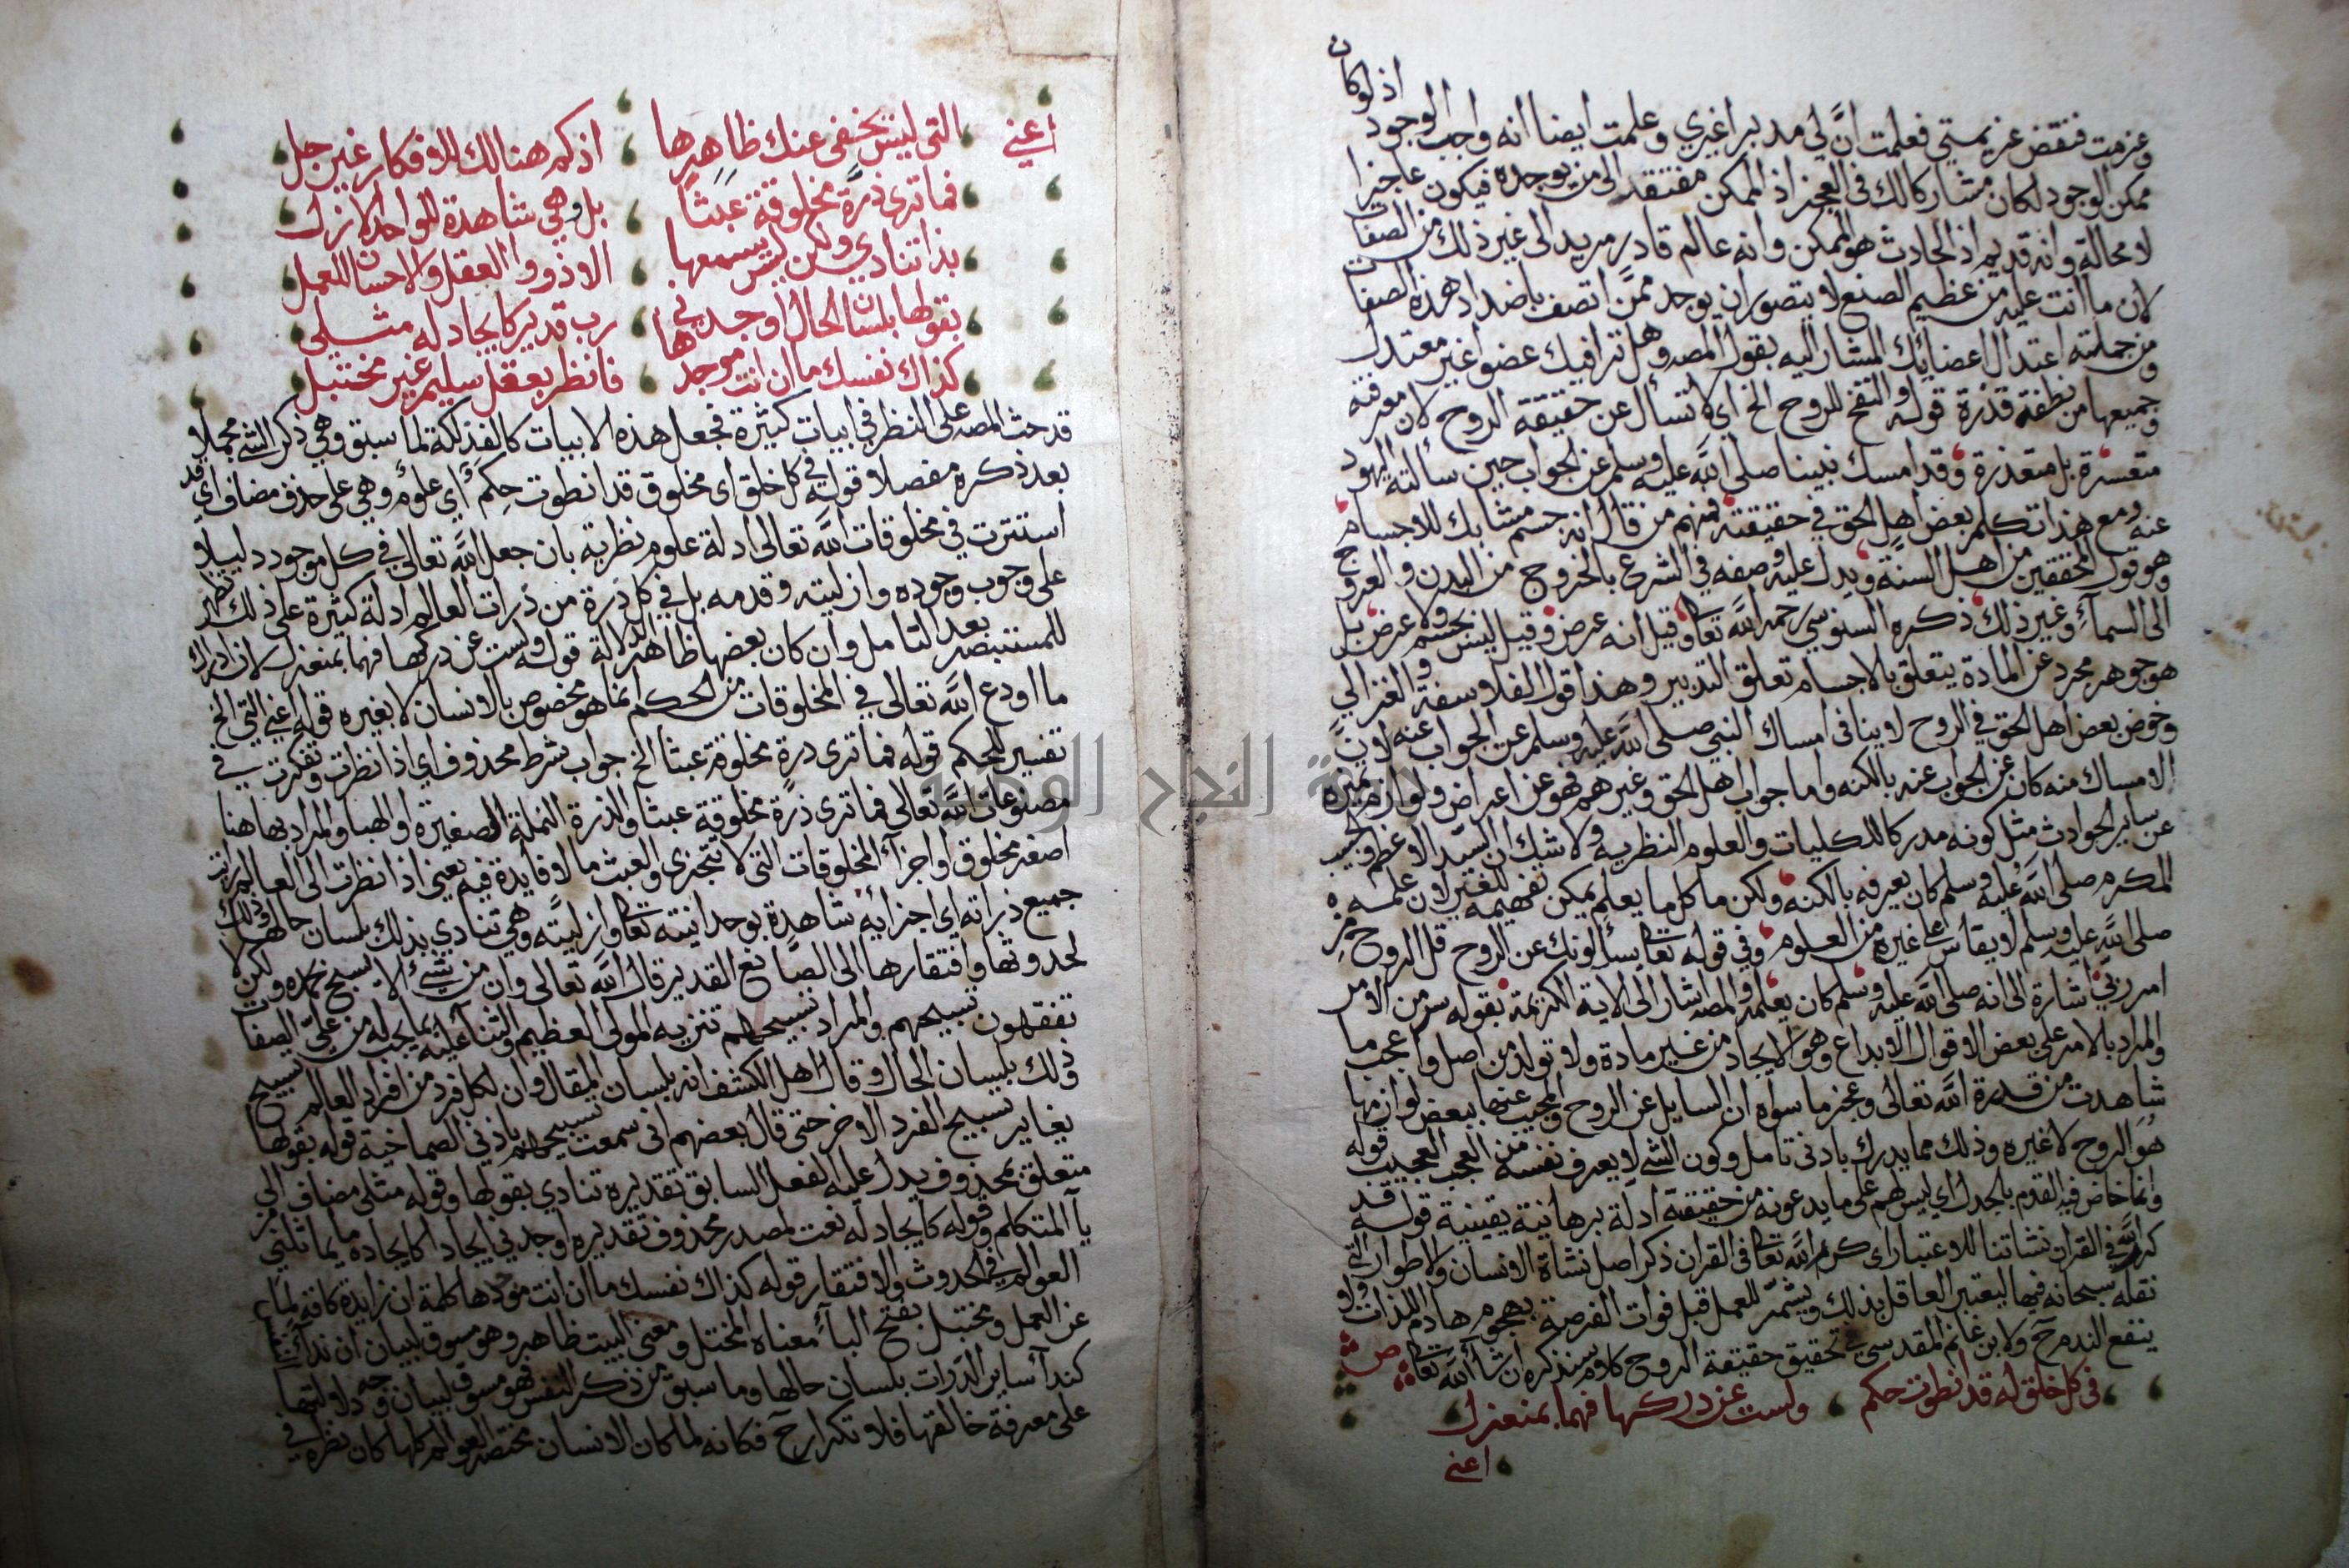 اذ لوكان
وعزمت فنقض عزيمتي فعلمت ان لي مدبرا غيري وعلمت ايضا انه واجب الوجود
ممكن الوجود لكان مشاركا لك في العجز اذ الممكن مفتقد الى من يوجده فيكون عاجزا
لا محالة وانه قديم اذ الحادث هو الممكن وانه عالم قادر مريد الى غير ذلك من الصفات
لان ما انت عليه من عظيم الصنع لا يتصور ان يوجد ممن اتصف باضداد هذه الصفات
ومن جملته اعتدال اعضائك المشار اليه بقول المصـ وهل ترا فيك عضوا غير معتدل
وجميعها من نطفة قذرة قوله والنفخ للروح الخ اي لا تسأل عن حقيقة الروح لان معرفته
متعسرة بل متعذرة وقد امسك نبينا صلى الله عليه وسلم عن الجواب حين سألته اليهود
عنه ومع هذا تكلم بعض اهل الحق في حقيقته فمنهم من قال انه جسم مشابك للاجسام
وهو قول المحققين من اهل السنة ويدل عليه وصفه في الشرع بالخروج من البدن والعروج
الى السمآء وغير ذلك ذكره السنوسي رحمه الله تعا وقيل انه عرض وقيل ليس بجسم ولا عرض بل
هو جوهر مجرد عن المادة يتعلق بالاجسام تعلق التدبير وهذا قول الفلاسفة والغزالي
وخوض بعض اهل الحق في الروح لا ينافى امساك النبي صلى الله عليه وسلم عن الجواب عنه لان
الامساك منه كان عن الجواب عنه بالكنه واما جواب اهل الحق وغيرهم فهو عن اعراض ولوازم تميزه
عن ساير الحوادث مثل كونه مدركا للكليات والعلوم النظرية ولا شك ان السيد الاعظم والحبيب
المكرم صلى الله عليه وسلم كان يعرفه بالكنه ولكن ما كل ما يعلم يمكن تفهيمه للغير لان علمه
صلى الله عليه وسلم لا يقاس على غيره من العلوم وفي قوله تعا يسألونك عن الروح قل الروح من
امر ربي اشارة الى انه صلى الله عليه وسلم كان يعلمه والمصـ اشار الى الاية الكريمة بقوله سر من الامر
والمراد بالامر على بعض الاقوال الابداع وهو الايجاد من غير مادة ولا تولد من اصل واعجب ما
شاهدت من قدرة الله تعالى وعجز ما سواه ان السايل عن الروح والمجيب عنها ببعض لوازمها
هو الروح لا غيره وذلك مما يدرك بادنى تامل وكون الشي لا يعرف نفسه من العجب العجيب قوله
وانما خاض فيه القوم بالجدل اي ليس لهم على ما يدعونه من حقيقة ادلة برهانية يقينية قوله قد
كرر الله في القران نشاتنا للاعتبار اى كرر الله تعا فى القران ذكر اصل نشاة الانسان والاطوار التي
نقله سبحانه فيها ليعتبر العاقل بذلك ويشمر للعمل قبل فوات الفرصة بهجوم هادم اللذات ولا
ينفع الندم ح ولابن غانم المقدسي في تحقيق حقيقة الروح كلام سنذكره ان شا الله تعا ص
في كل خلق له قد انطوت حكم ولست عن دركها فهما بمنعزل
اعني
اعني التي ليس يخفى عنك ظاهرها اذ كم هنالك للافكار غير جل
فما ترى ذرة مخلوقة عبثا بل وهي شاهدة للواحد الازل
بذا تنادي ولكن ليس يسمعها الا ذووا العقل والاحسان للعمل
بقولها بلسان الحال اوجدني رب قدير كايجاد له مثلي
كذاك نفسك ما ان انت موجدها فانظر بعقل سليم غير مختبل
قد حث المصـ على النظر في ابيات كثيرة فجعل هذه الابيات كالفذلكة لما سبق وهي ذكر الشي مجملا
بعد ذكره مفصلا قوله في كل خلق اى مخلوق قد انطوت حكم أي علوم وهي على حذف مضاف اي قد
استترت في مخلوقات الله تعالى ادلة علوم نظرية بان جعل الله تعالى في كل موجود دليلا
على وجوب وجوده وازليته وقدمه بل في كل ذرة من ذرات العالم ادلة كثيرة على ذلك تظهر
للمستبصر بعد التامل وان كان بعضها ظاهر الدلالة قوله ولست عن دركها فهما بمنعزل لان ادراك
ما اودع الله تعالى في المخلوقات من الحكم انما هو مخصوص بالانسان لا بغيره قوله اعني التي الخ
تفسير للحكم قوله فما ترى ذرة مخلوقة عبثا الخ جواب شرط محذوف اي اذا نظرت وتفكرت في
مصنوعات الله تعالى فما ترى ذرة مخلوقة عبثا والذرة النملة الصغيرة او الهبا والمراد بها هنا
اصغر مخلوق او اجزآء المخلوقات التي لا تتجزى والعبث ما لا فايدة فيه يعني اذا نظرت الى العالم رايت
جميع ذراته اي اجزايه شاهدة بوحدانيته تعا وازليته وهي تنادي بذلك بلسان حالها وذلك
لحدوثها وافتقارها الى الصانع القدير قال الله تعالى وان من شيء الا يسبح بحمده ولكن لا
تفقهون تسبيحهم والمراد تسبيحهم تنزيه المولى العظيم والثنآ عليه بما يجب له من علي الصفات
وذلك بلسان الحال وقال اهل الكشف انه بلسان المقال وان لكل فرد من افراد العالم تسبيح
يغاير تسبيح الفرد الاخر حتى قال بعضهم انى سمعت تسبيحهم باذني الصماخية قوله بقولها
متعلق بمحذوف يدل عليه الفعل السابق تقديره تنادي بقولها وقوله مثلي مضاف الى
يآ المتكلم وقوله كايجاد له نعت لمصدر محذوف تقديره اوجدني ايجادا كايجاده ما يماثلني من
العوالم في الحدوث والافتقار قوله كذاك نفسك ما ان انت موجدها كلمة ان زايدة كافة لما
عن العمل ومختبل بفتح البآ معناه المختل ومعنى البيت ظاهر وهو مسوق لبيان ان ندآ
كندآ ساير الذرات بلسان حالها وما سبق من ذكر النفس فهو مسوق لبيان وجه دلالتها
على معرفة خالقها فلا تكرار ح فكانه لما كان الانسان مختصر العوالم كلها كان نظره في